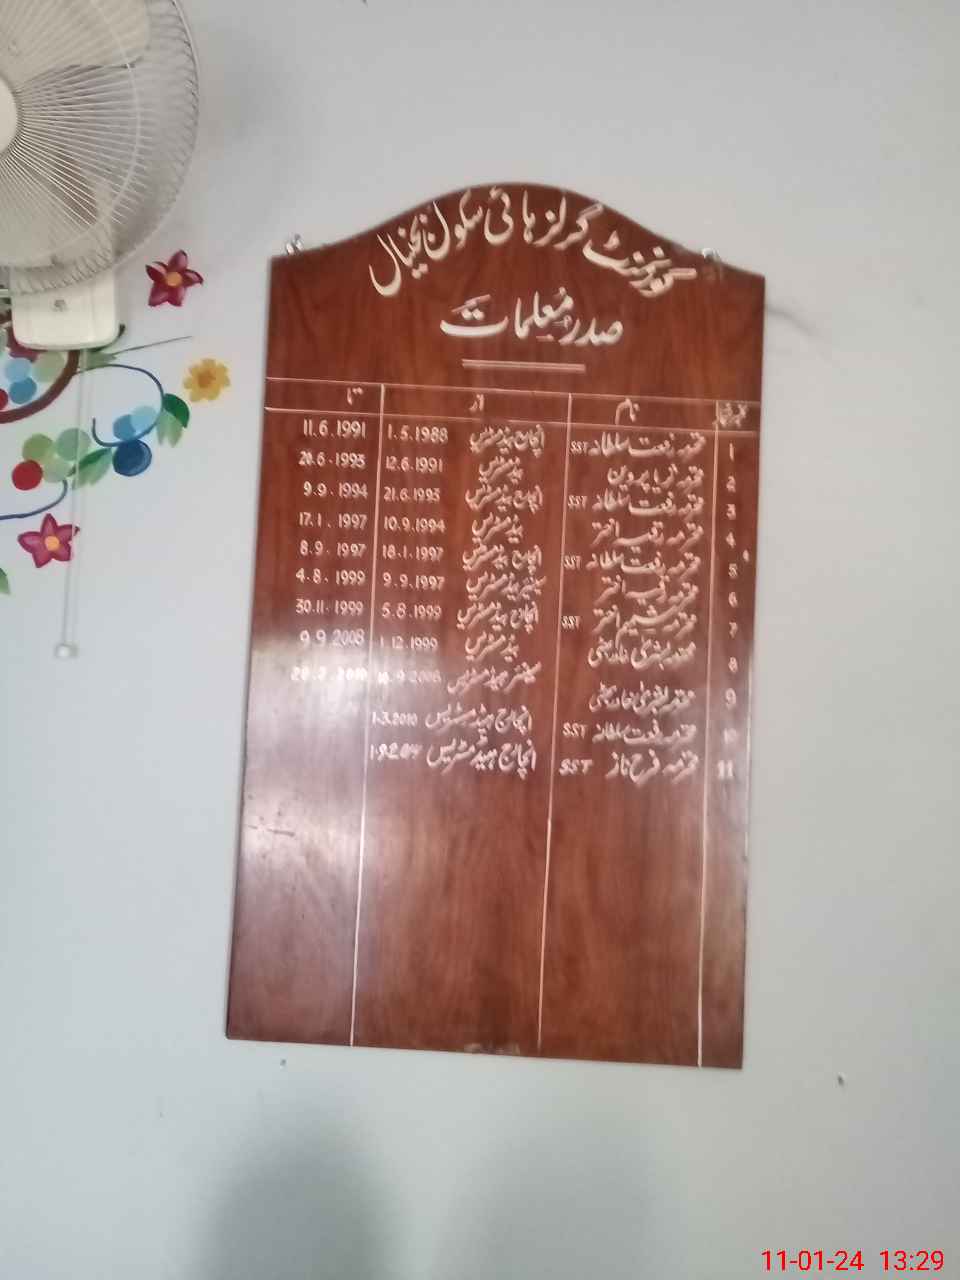 گورنمنٹ گرلز ہائی سکول نخیال
صدر معلمات
نمبر شمار نام از تا
1 محترمہ رفعت سلطانہ SST انچارج ہیڈمسٹریس 1.5.1988 11.6.1991
2 محترمہ ثریا پروین ہیڈمسٹریس 12.6.1991 20.6.1993
3 محترمہ رفعت سلطانہ SST انچارج ہیڈمسٹریس 21.6.1993 9.9.1994
4 محترمہ رقیہ اختر ہیڈمسٹریس 10.9.1994 17.1.1997
5 محترمہ رفعت سلطانہ SST انچارج ہیڈمسٹریس 18.1.1997 8.9.1997
6 محترمہ رقیہ اختر سینئر ہیڈمسٹریس 9.9.1997 4.8.1999
7 محترمہ شمیم اختر SST انچارج ہیڈمسٹریس 5.8.1999 30.11.1999
8 محترمہ بشریٰ خادر بھٹی ہیڈمسٹریس 1.12.1999 9.9.2008
9 محترمہ بشریٰ خادر بھٹی سینئر ہیڈمسٹریس 10.9.2008 28.2.2010
10 محترمہ رفعت سلطانہ SST انچارج ہیڈمسٹریس 1.3.2010
11 محترمہ فرح ناز SST انچارج ہیڈمسٹریس
11-01-24 13:29